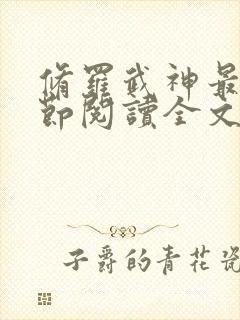 脩羅武神最
節閱讀全文
子爵的青花瓷